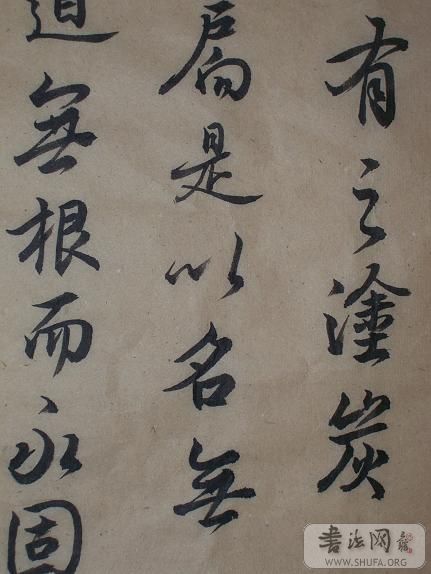 有之塗炭
扃是以名無
道無根而永固
書法网
WWW.SHUFA.ORG